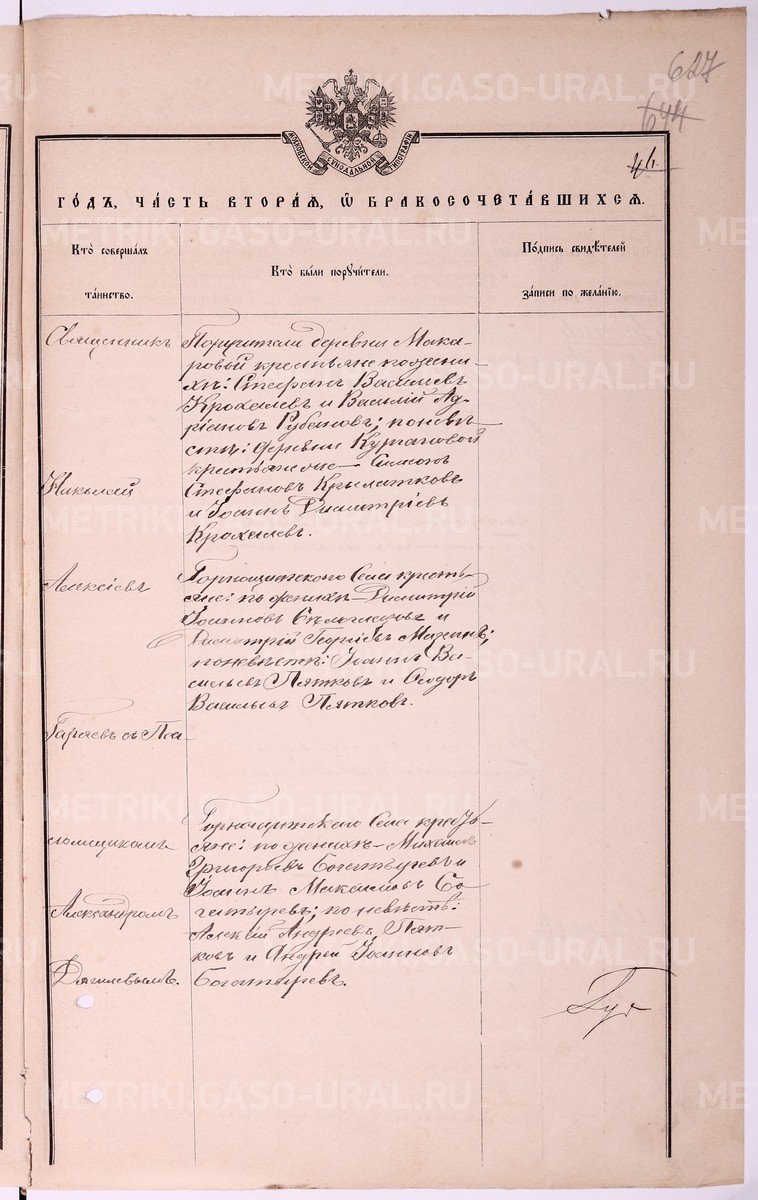 627
644
46.
МОСКОВСКОЙ СѴНОДАЛЬНОЙ ТИПОГРАФІИ
ГО́ДЪ, ЧА́СТЬ ВТОРА́Я, Ѡ БРАКОСОЧЕТА́ВШИХСЯ.
Кто̀ соверша́лъ
та́инство.
Кто̀ бы́ли порꙋчи́тели.
По́дпись свидѣ́телей
за́писи по жела́нїю.
Священникъ
Николай
Алексіевъ
Гаряевъ съ Пса-
ломщикомъ
Александромъ
Поручители деревни Мака-
ровой крестьяне по жени-
хѣ: Стефанъ Васильевъ
Крохалевъ и Василій Ад-
ріановъ Рубцовъ; по невѣ-
стѣ: деревни Кургановой
крестьяне Симеонъ
Стефановъ Крылатковъ
и Іоаннъ Димитріевъ
Крохалевъ.
Горнощитскаго Села кресть-
яне: по женихѣ – Димитрій
Іоанновъ Бѣлоглазовъ и
Димитрій Георгіевъ Мазинъ;
по невѣстѣ: Іоаннъ Ва-
сильевъ Пятковъ и Ѳеодоръ
Васильевъ Пятковъ.
Горнощитскаго Села кресть-
яне: по женихѣ – Михаилъ
Григорьевъ Богатыревъ и
Іоаннъ Максимовъ Бо-
гатыревъ; по невѣстѣ:
Алексій Андреевъ Пят-
ковъ и Андрей Іоанновъ
Богатыревъ.
METRIKI.GASO-URAL.RU